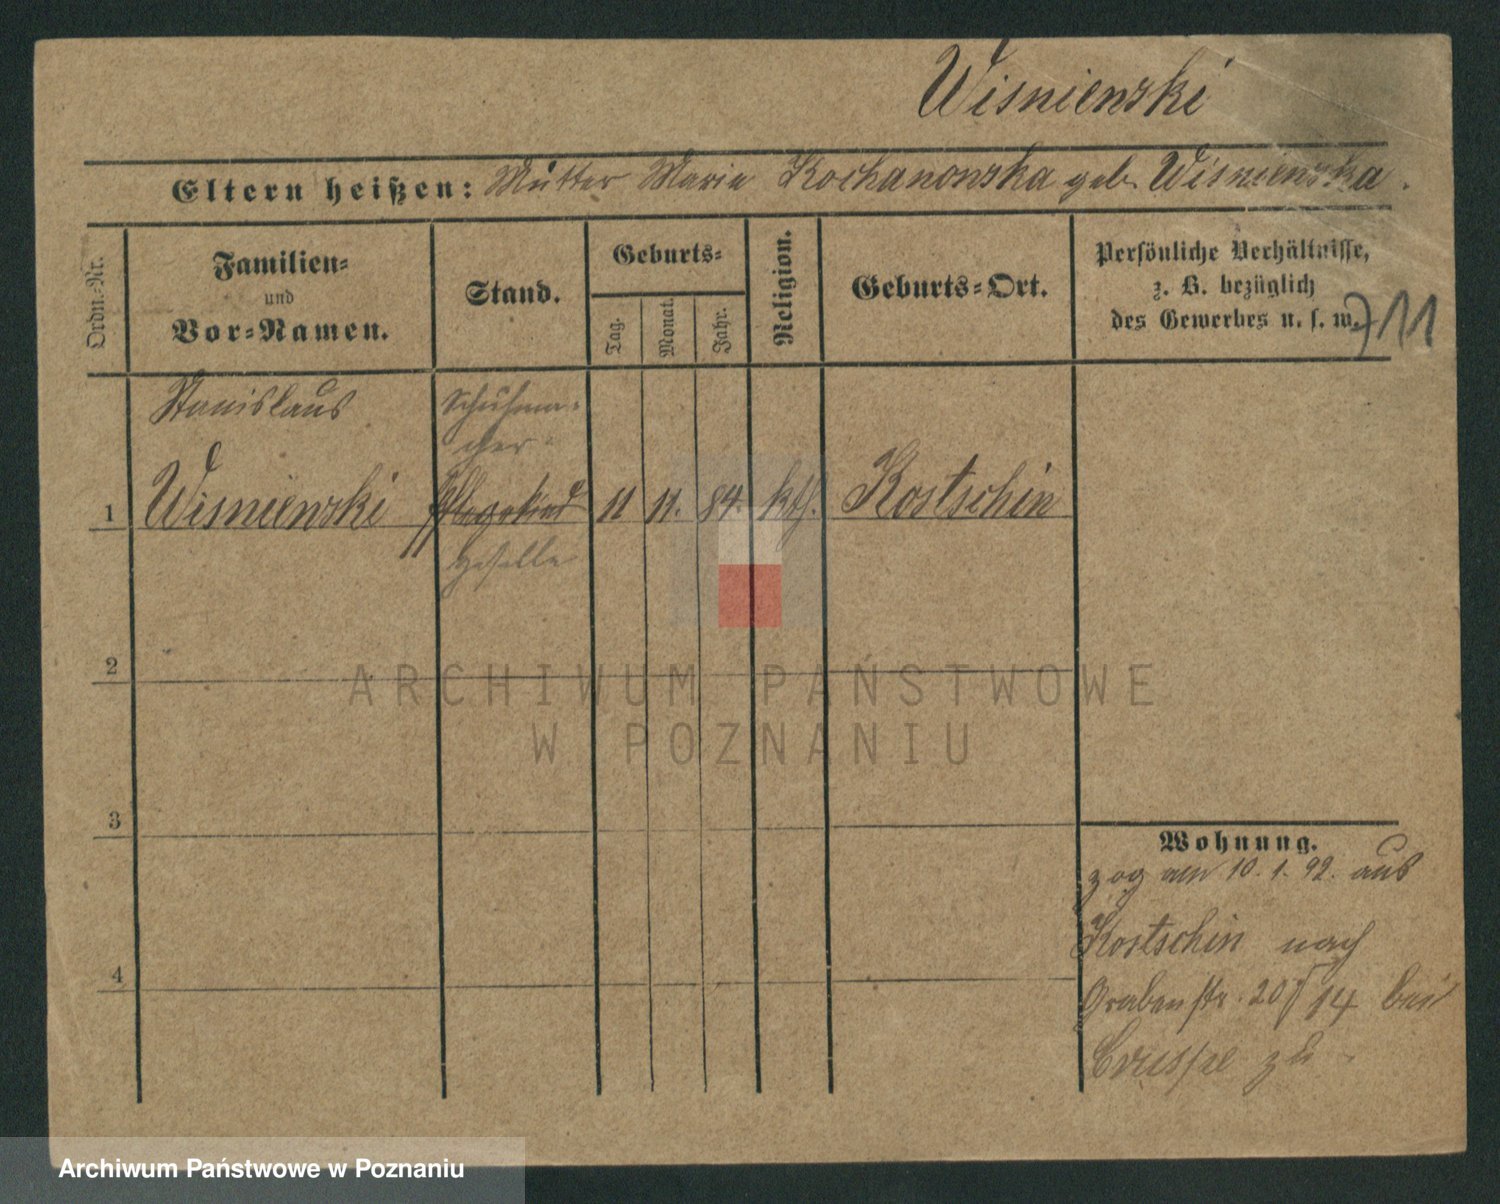 Wisniewski
Eltern heißen: Mutter Marie Kochanowska geb. Wisniewska.
Ordn.-Nr.
Familien-
und
Vor-Namen.
Stand.
Geburts-
Tag.
Monat.
Jahr.
Religion.
Geburts-Ort.
Persönliche Verhältnisse,
z. B. bezüglich
des Gewerbes u. s. w.
Stanislaus
Schuhma-
cher-
1 Wisniewski Pflegekind 11 11. 84. kth. Kostschin
Geselle
2
3
4
Wohnung.
zog am 10.1.92. aus
Kostschin nach
Grabenstr. 20 14 bei
zu
ARCHIWUM PAŃSTWOWE
W POZNANIU
Archiwum Państwowe w Poznaniu